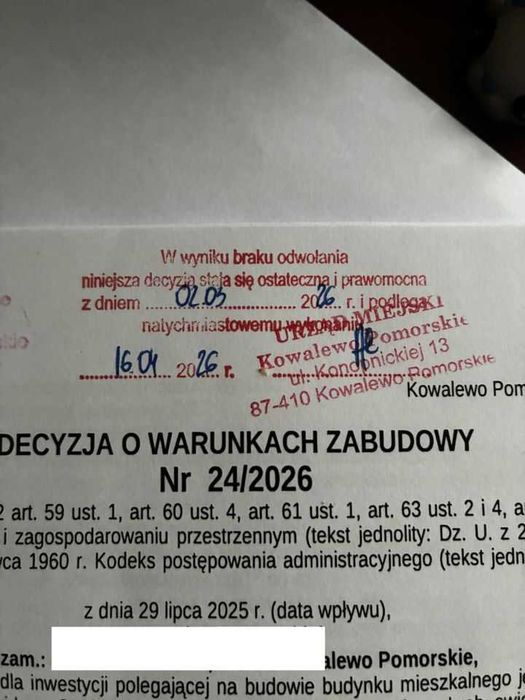 W wyniku braku odwołania
niniejsza decyzja staje się ostateczna i prawomocna
z dniem 02.03 2026 r. i podlega
natychmiastowemu wykonaniu
16.04 2026 r.
URZĄD MIEJSKI
Kowalewo Pomorskie
ul. Konopnickiej 13
87-410 Kowalewo Pomorskie
Kowalewo Pom
DECYZJA O WARUNKACH ZABUDOWY
Nr 24/2026
2 art. 59 ust. 1, art. 60 ust. 4, art. 61 ust. 1, art. 63 ust. 2 i 4, a
i zagospodarowaniu przestrzennym (tekst jednolity: Dz. U. z 2
ca 1960 r. Kodeks postępowania administracyjnego (tekst jedn
z dnia 29 lipca 2025 r. (data wpływu),
zam.: alewo Pomorskie,
dla inwestycji polegającej na budowie budynku mieszkalnego je